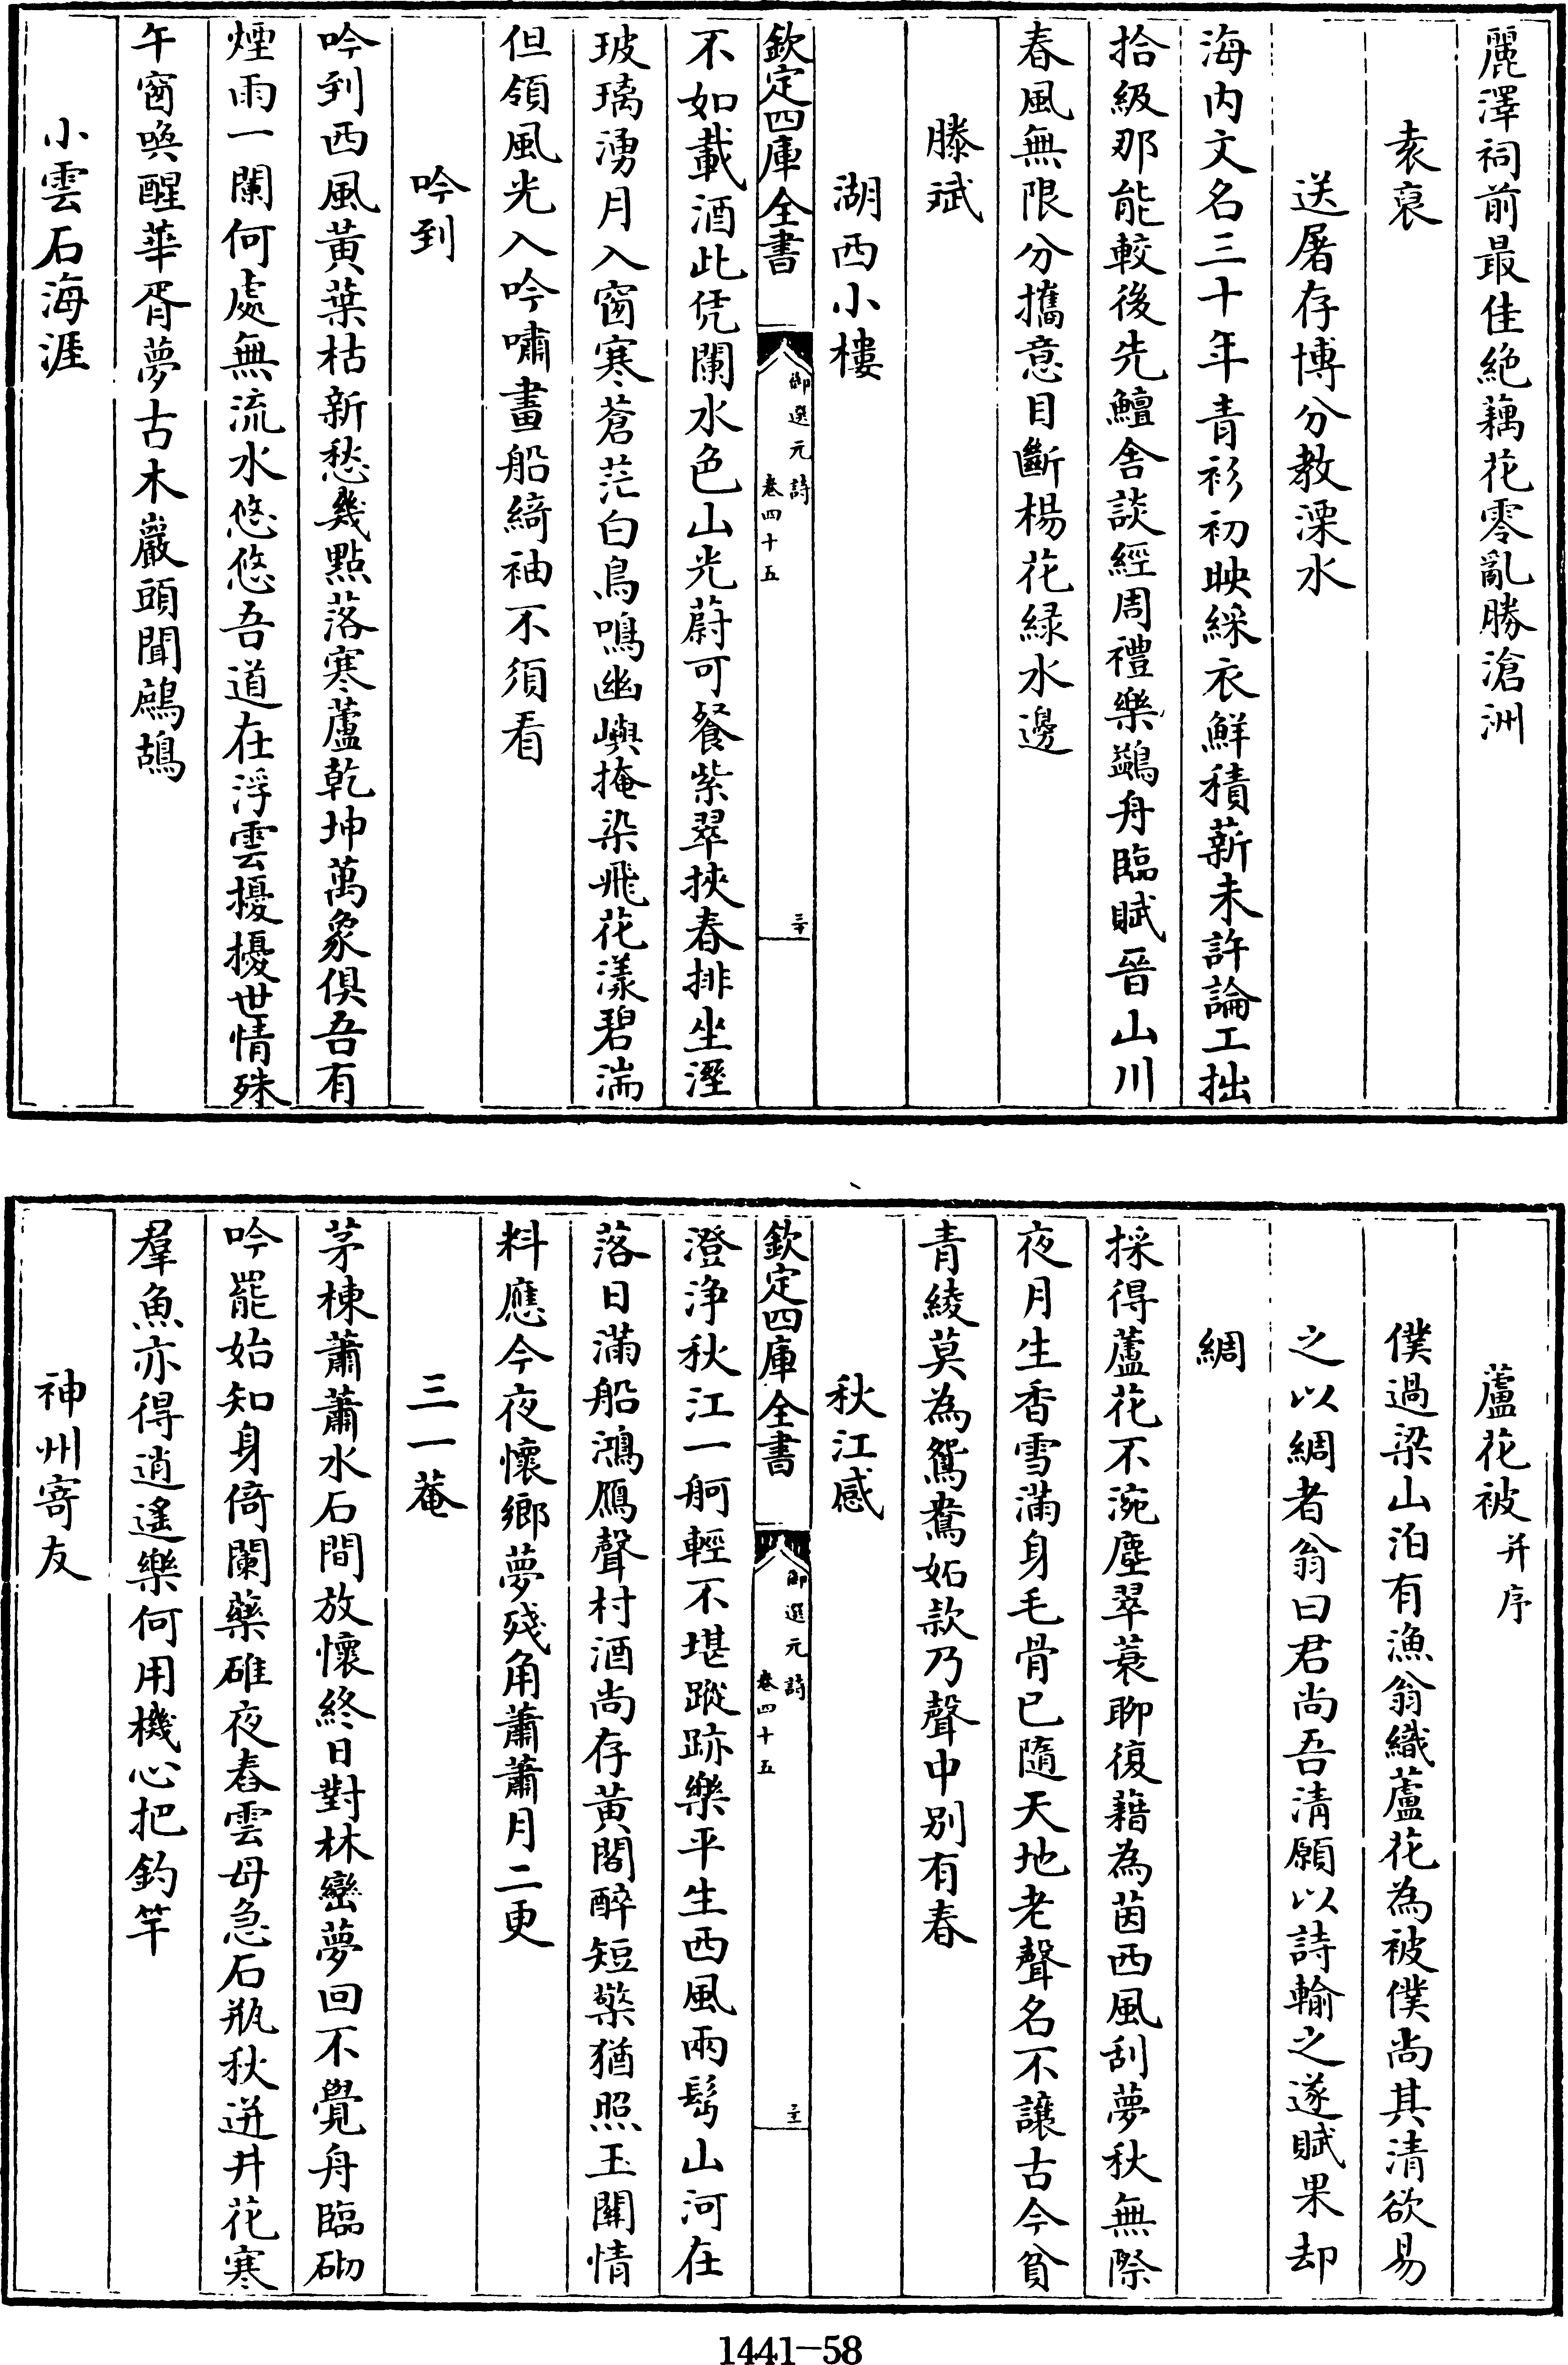 麗澤祠前最佳絶藕花零亂勝滄洲
袁裒
送屠存博分教溧水
海内文名三十年青衫初映綵衣鮮積薪未許論工拙
拾級那能較後先鱣舎談經周禮樂鷁舟臨賦晉山川
春風無限分攜意目斷楊花緑水邊
滕斌
湖西小樓
欽定四庫全書
御選元詩
卷四十五
三十
不如載酒此凭闌水色山光蔚可餐紫翠挾春排坐溼
玻璃湧月入窗寒蒼茫白鳥鳴幽嶼掩染飛花漾碧湍
但領風光入吟嘯畫船綺袖不須看
吟到
吟到西風黄葉枯新愁幾點落寒蘆乾坤萬象俱吾有
煙雨一闌何處無流水悠悠吾道在浮雲擾擾世情殊
午窗喚醒華胥夢古木巖頭聞鷓鴣
小雲石海涯
蘆花被并序
僕過梁山泊有漁翁織蘆花為被僕尚其清欲易
之以綢者翁曰君尚吾清願以詩輸之遂賦果却
綢
採得蘆花不涴塵翠蓑聊復藉為茵西風刮夢秋無際
夜月生香雪滿身毛骨已隨天地老聲名不讓古今貧
青綾莫為鴛鴦妬款乃聲中别有春
秋江感
欽定四庫全書
御選元詩
卷四十五
三十一
澄浄秋江一舸輕不堪蹤跡樂平生西風兩鬢山河在
落日滿船鴻鴈聲村酒尚存黄閣醉短檠猶照玉關情
料應今夜懷鄉夢殘角蕭蕭月二更
三一菴
茅棟蕭蕭水石間放懷終日對林巒夢回不覺舟臨砌
吟罷始知身倚闌藥碓夜舂雲母急石瓶秋迸井花寒
羣魚亦得逍遙樂何用機心把釣竿
神州寄友
1441-58